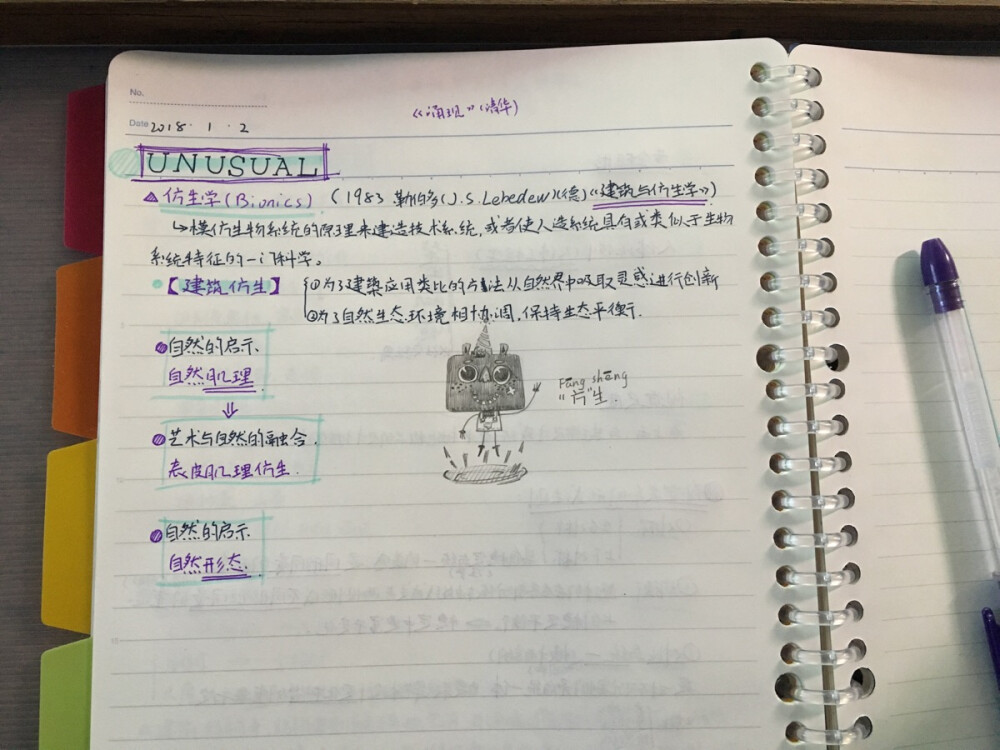 No.
《涌现》(清华)
Date 2018. 1. 2
UNUSUAL
仿生学(Bionics) (1983 勒伯多(J.S.Lebedew)(德)《建筑与仿生学》)
↳模仿生物系统的原理来建造技术系统,或者使人造系统具有或类似于生物
系统特征的一门科学。
【建筑仿生】 ①为了建築应用类比的方法从自然界中吸取灵感进行创新
②为了自然生态环境相协调,保持生态平衡.
自然的启示
自然肌理
⇓
艺术与自然的融合.
表皮肌理仿生.
Fāng shēng
“方”生.
自然的启示
自然形态.